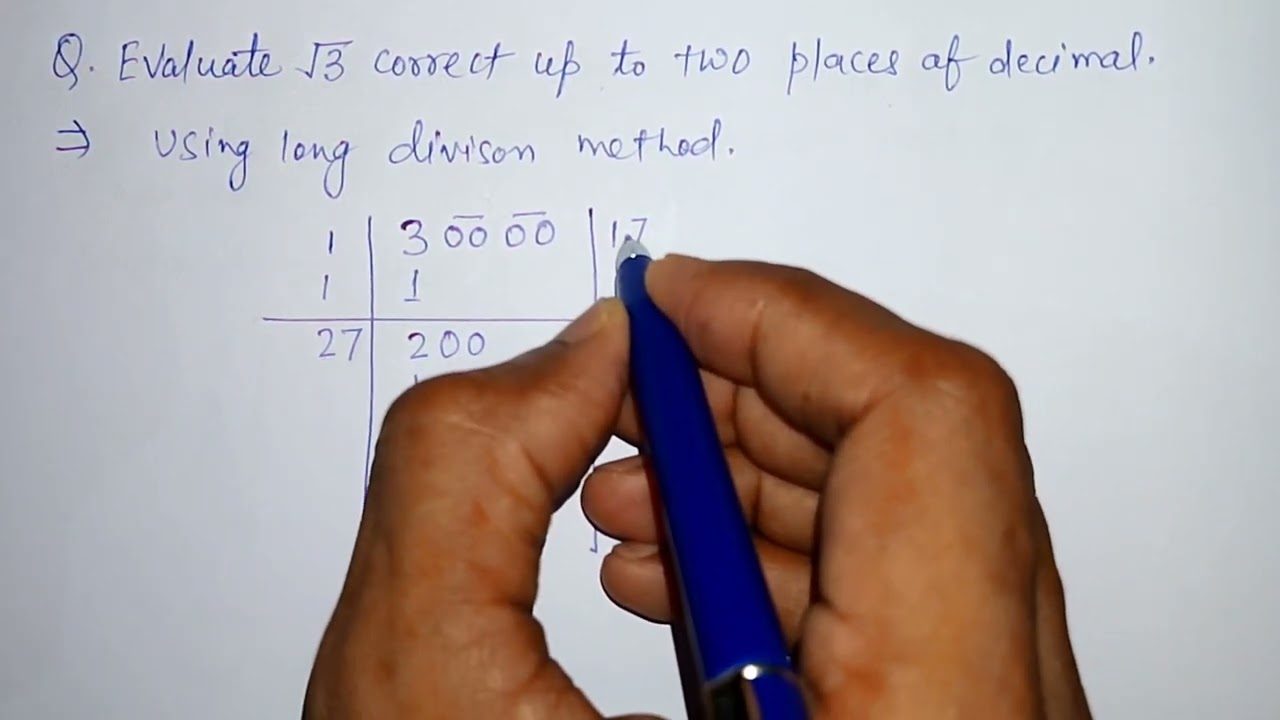 Q. Evaluate √3 correct up to two places of decimal.
⇒ Using long divison method.
1 | 3 00 00 | 1.7
1 | 1
27 | 200